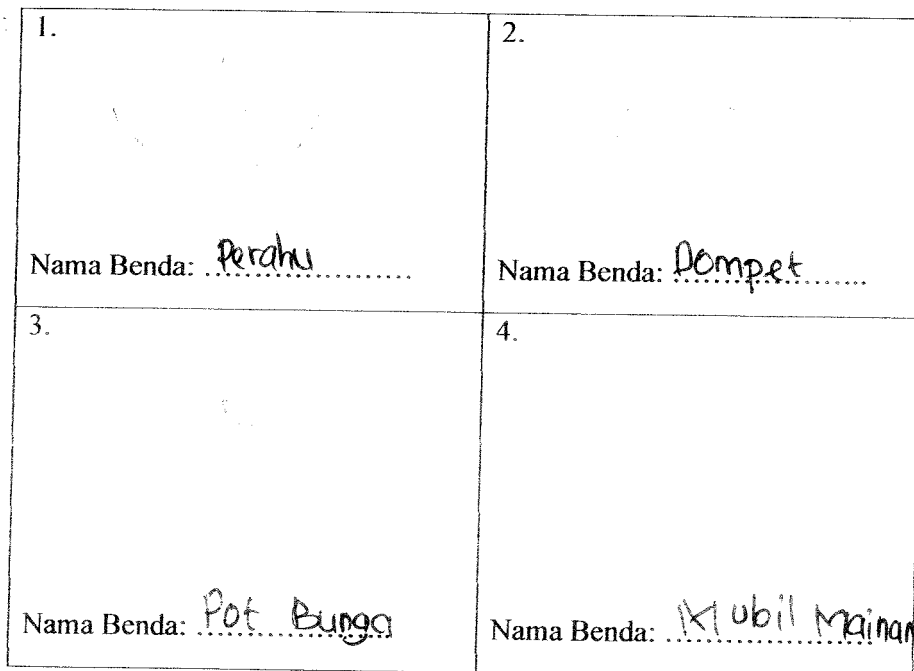 1.
2.
Nama Benda: Perahu
Nama Benda: Dompet
3.
4.
Nama Benda: Pot Bunga
Nama Benda: Mubil Mainan